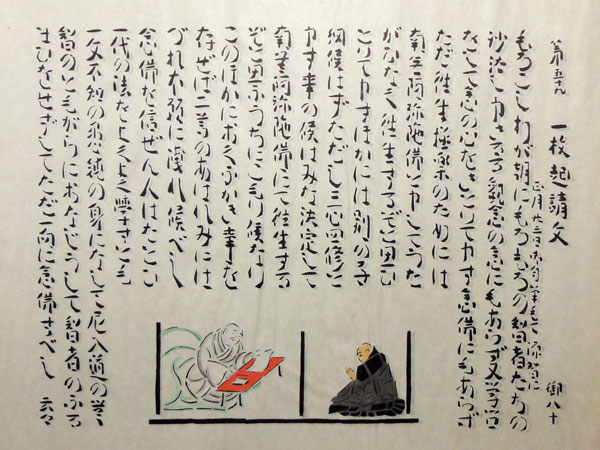 第五十九 一枚起請文 御八十
正月廿三日御自筆をもて源智に
もろこしわが朝にもろもろの智者たちの
沙汰し申さるる観念の念にもあらず又学問
をして念の心をさとりて申す念佛にもあらず
ただ往生極楽のためには
南無阿弥陀佛と申してうた
がひなく往生するぞと思ひ
とりて申すほかには別の子
細候はずただし三心四修と
申す事の候はみな決定して
南無阿弥陀佛にて往生する
ぞと思ふうちにこもり候なり
このほかにおくふかき事を
存ぜば二尊のあはれみには
づれ本願に洩れ候べし
念佛を信ぜん人はたとひ
一代の法をよくよく學すとも
一文不知の愚鈍の身になして尼入道の無
智のともがらにおなじうして智者のふる
まひをせずしてただ一向に念佛すべし 云々